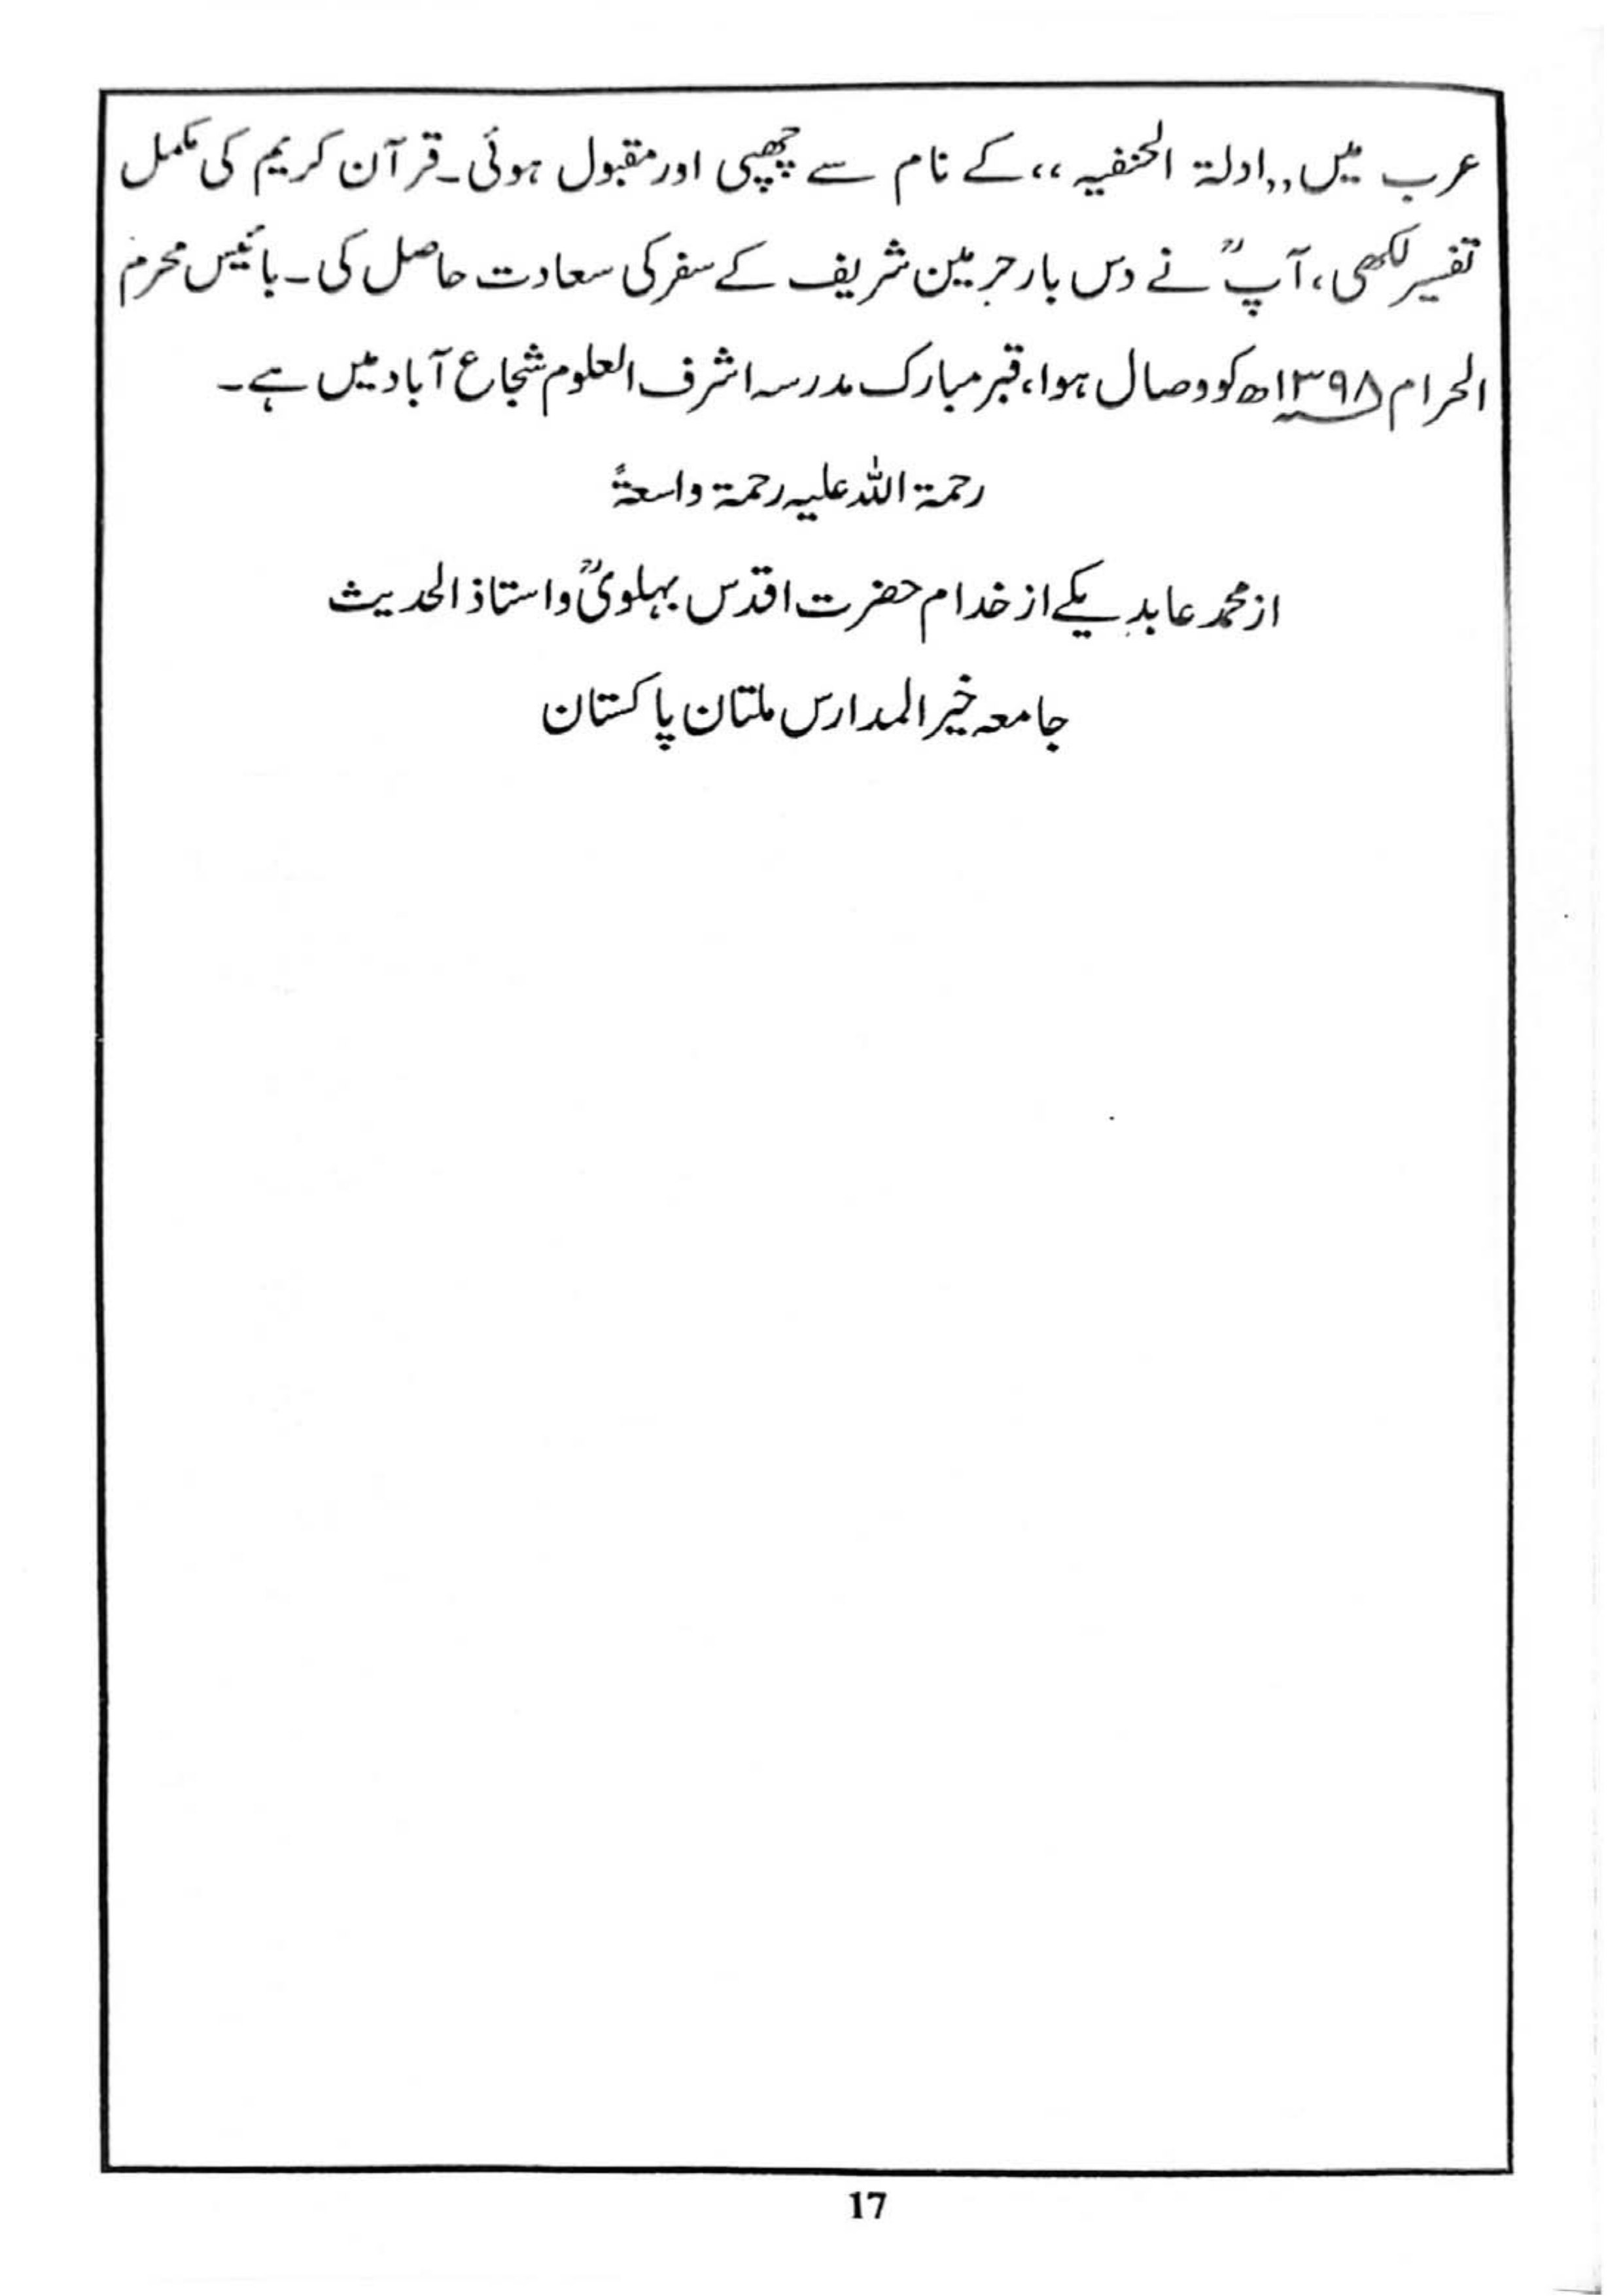 عرب میں ,,ادلۃ الحنفیہ،، کے نام سے چھپی اور مقبول ہوئی۔ قرآن کریم کی مکمل
تفسیر لکھی، آپؒ نے دس بار حرمین شریف کے سفر کی سعادت حاصل کی۔ بائیس محرم
الحرام ۱۳۹۸ھ کو وصال ہوا، قبر مبارک مدرسہ اشرف العلوم شجاع آباد میں ہے۔
رحمۃ اللہ علیہ رحمۃ واسعۃً
از محمد عابد یکے از خدام حضرت اقدس بہلویؒ و استاذ الحدیث
جامعہ خیر المدارس ملتان پاکستان
17